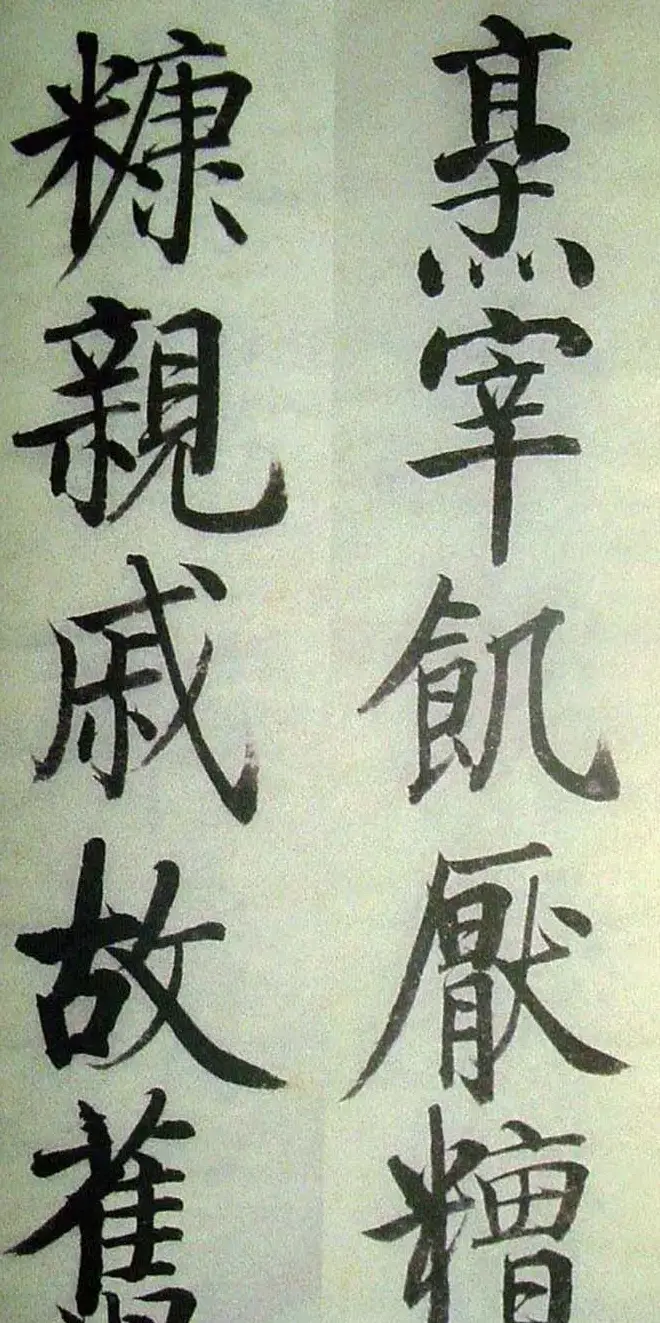 烹宰飢厭糟
糠親戚故舊